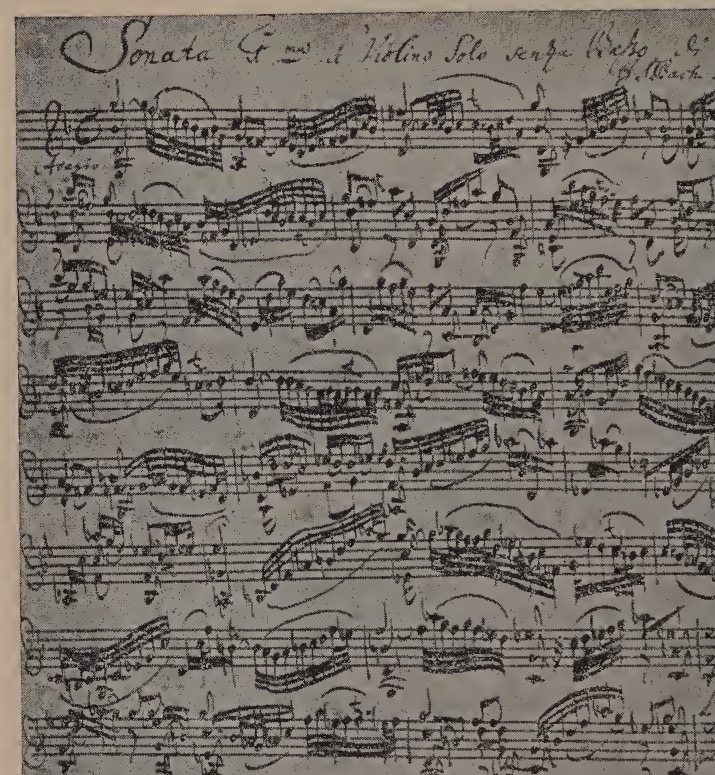 Sonata 1ma à Violino Solo senza Basso di
J.S. Bach.
Adagio